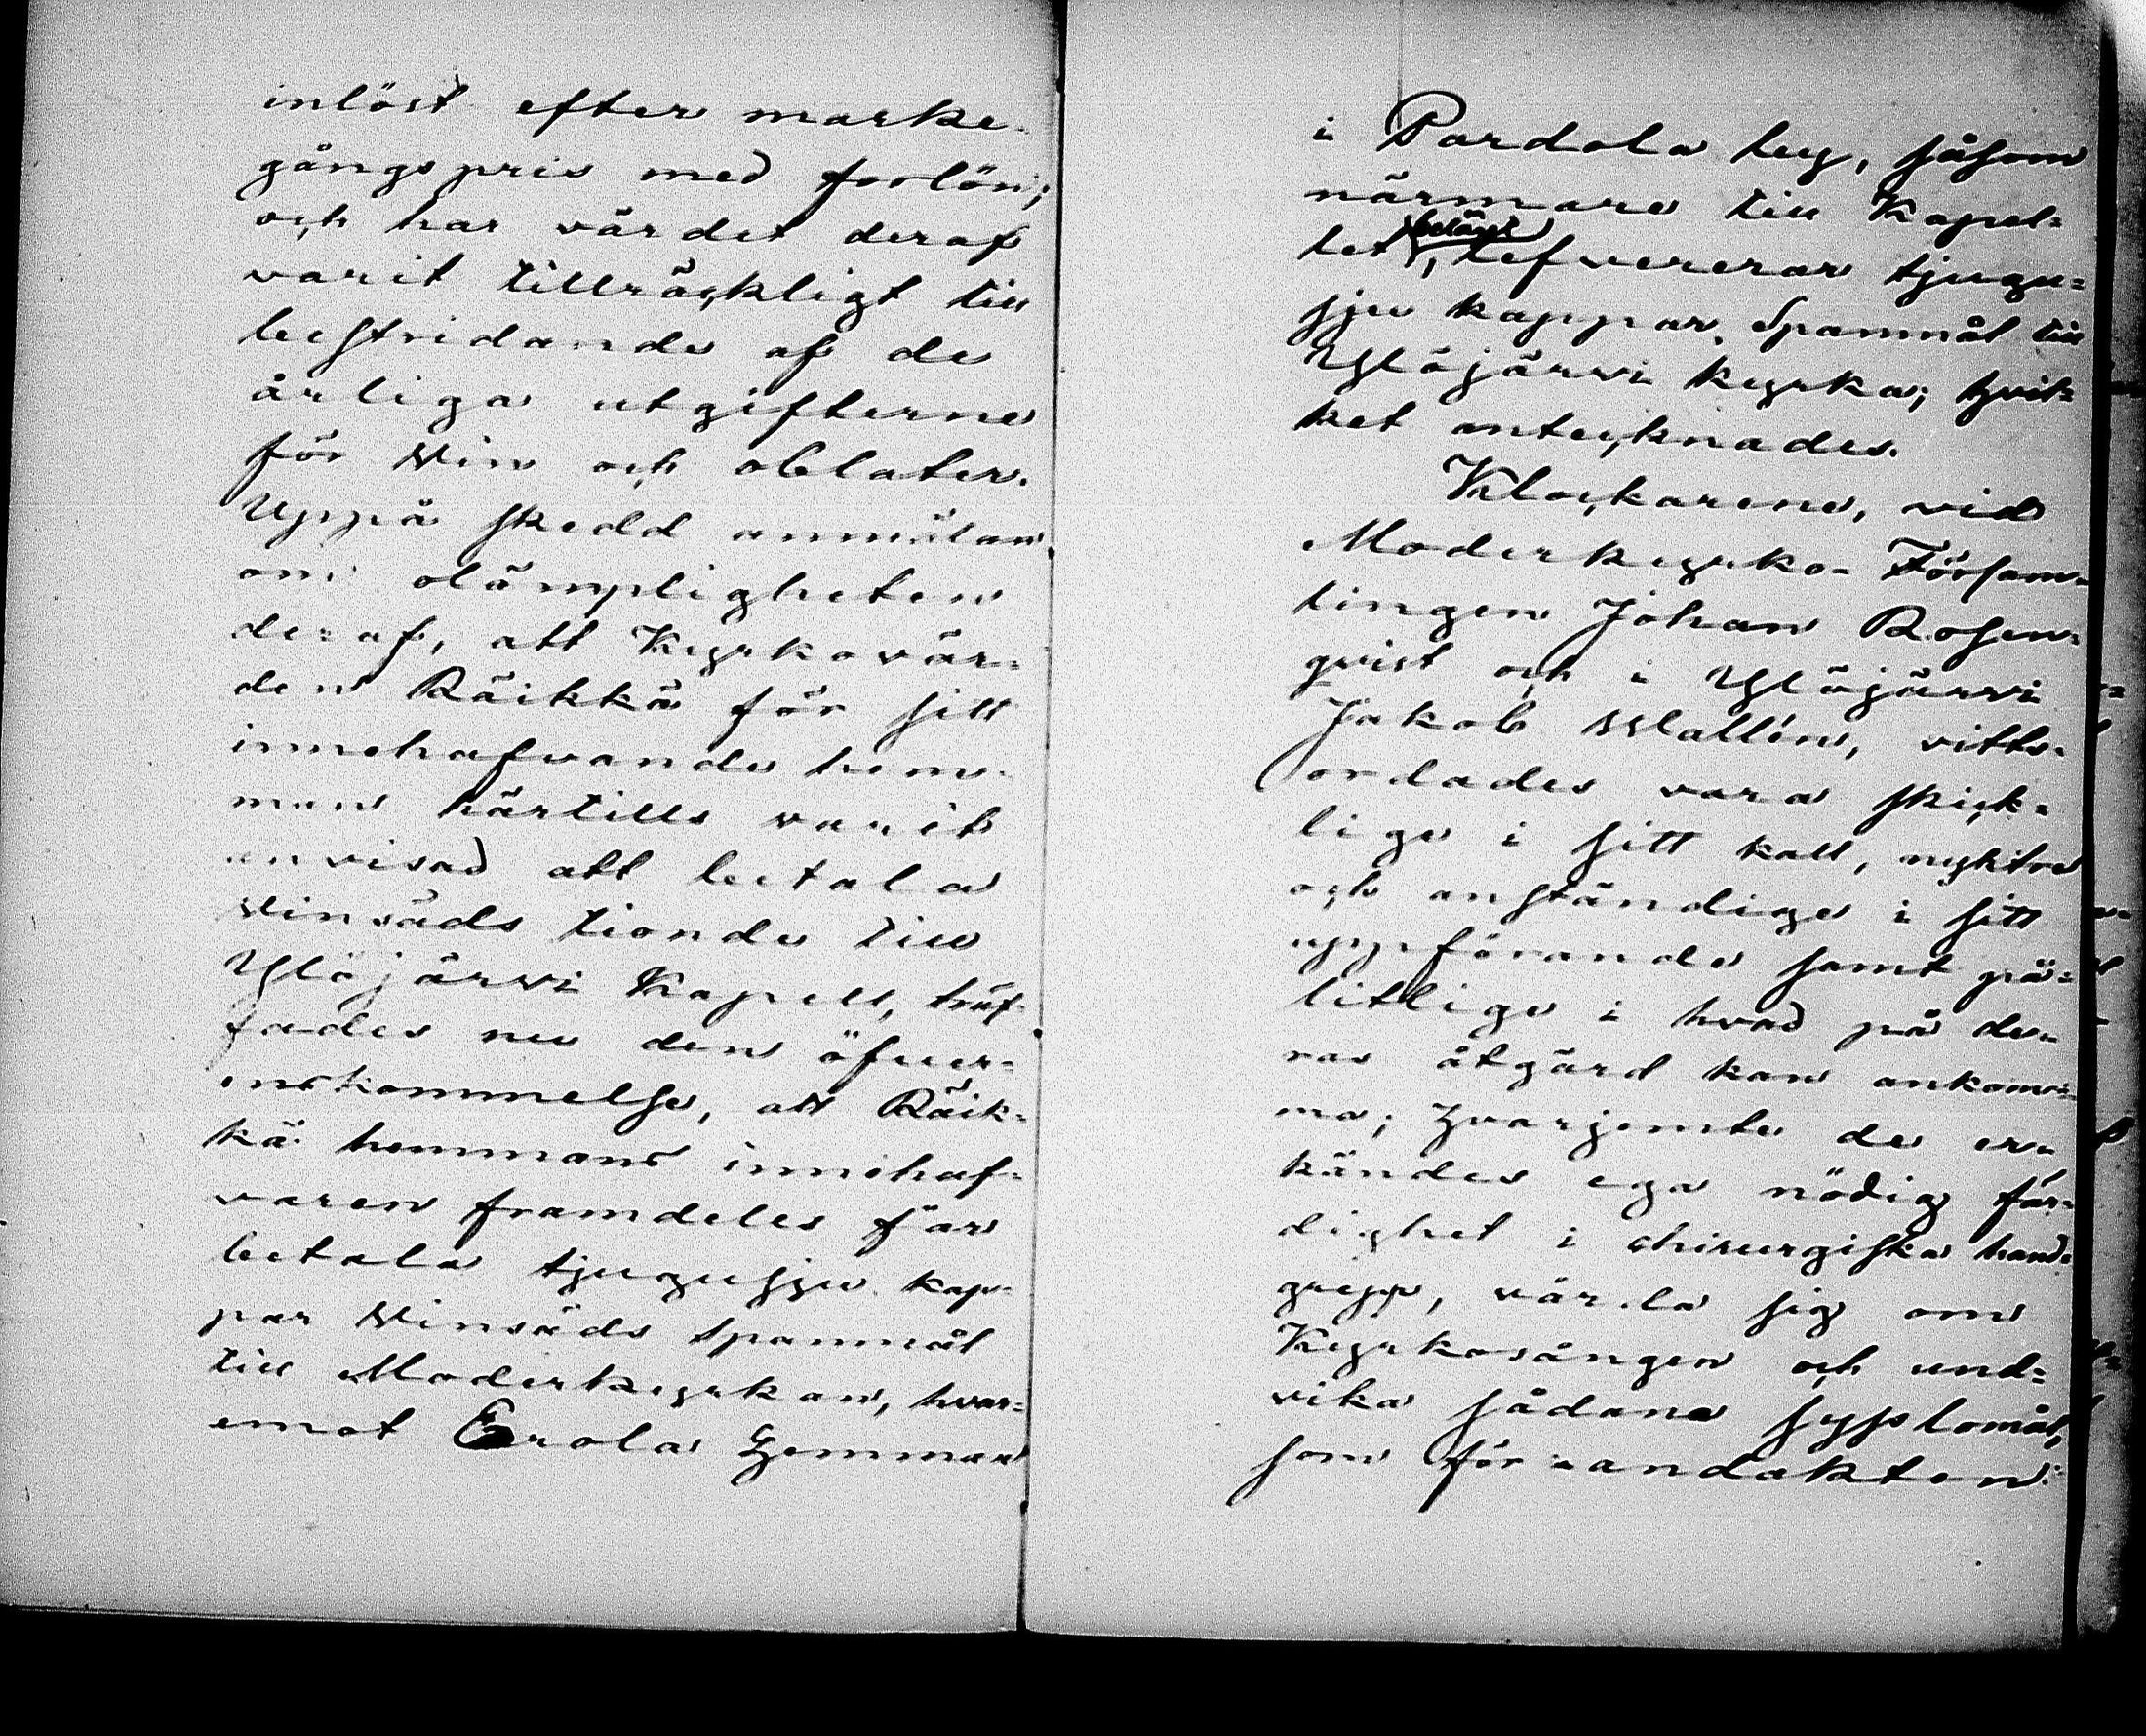 inlöst efter marke-
gångspris med forlön;
och har värdet deraf
varit tillräckligt till
bestridande af de
årliga utgifterne
för Vin och oblater.
Uppå skedd anmälan
om olämpligheten
deraf, att Kyrkovär-
den Räikkä för sitt
innehafvande hem-
man härtills varit
anvisad att betala
Vinsäds tionde till
Ylöjärvi Kapell, träf-
fades nu den öfver-
enskommelse, att Räik-
kä hemmans innehaf-
varen framdeles får
betala tjugusju kap-
par Vinsäds spannmål
till Moderkyrkan, hvar-
emot Erola Hemman
i Pardola by, såsom
närmare till Kapel-
let beläget, lefvererar tjugu-
sju kappar Spanmål till
Ylöjärvi kyrka; hvil-
ket antecknades.
Klockarene, vid
Moderkyrko- Försam-
lingen Johan Rosen-
qvist och i Ylöjärvi
Jakob Wallén, vitts-
ordades vara skick-
lige i sitt kall, nyktre
och anständige i sitt
uppförande samt på-
litlige i hvad på de-
ras åtgärd kan ankom-
ma; hvarjemte de er-
kändes ega nödig fär-
dighet i chirurgiska hand-
grepp, vårda sig om
Kyrkosången och und-
vika sådana sysslomål,
som för andakten